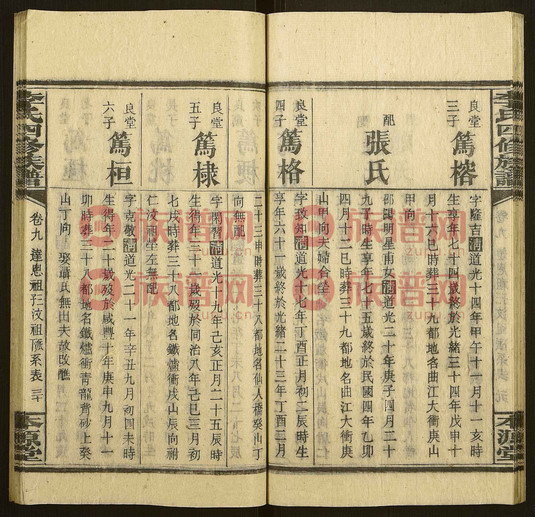 李氏四修族譜
良堂
三子
篤榕
字隆吉清道光十四年甲午十一月十一亥時
生享年七十四歲終於光緒三十四年戊申十
月十六巳時葬三十九都地名曲江大衝庚山
甲向
配
張氏
邵陽明星南女清道光二十年庚子四月二十
九丁時生享年七十五歲終於民國四年乙卯
四月十二巳時葬三十九都地名曲江大衝庚
山甲向夫婦合塋
良堂
四子
篤格
字致知清道光十七年丁酉正月初二辰時生
享年六十一歲終於光緒二十三年丁酉二月
二十三申時葬三十八都地名仙人橋癸山丁
向無配
良堂
五子
篤棣
字開習清道光十九年己亥正月二十五辰時
生得年三十一歲歿於同治八年己巳三月初
七戌時葬三十八都地名鐵爐衝戌山辰向祔
仁汶祖塋左無配
良堂
六子
篤桓
字克敬清道光二十一年辛丑九月初四未時
生得年二十歲歿於咸豐十年庚申九月十一
卯時葬三十八都地名鐵爐衝青龍背砂上癸
山丁向 娶蕭氏無出夫故改醮
李氏四修族譜
卷九
達恩祖子汶祖派系表
三十
本源堂
本源堂
族谱网